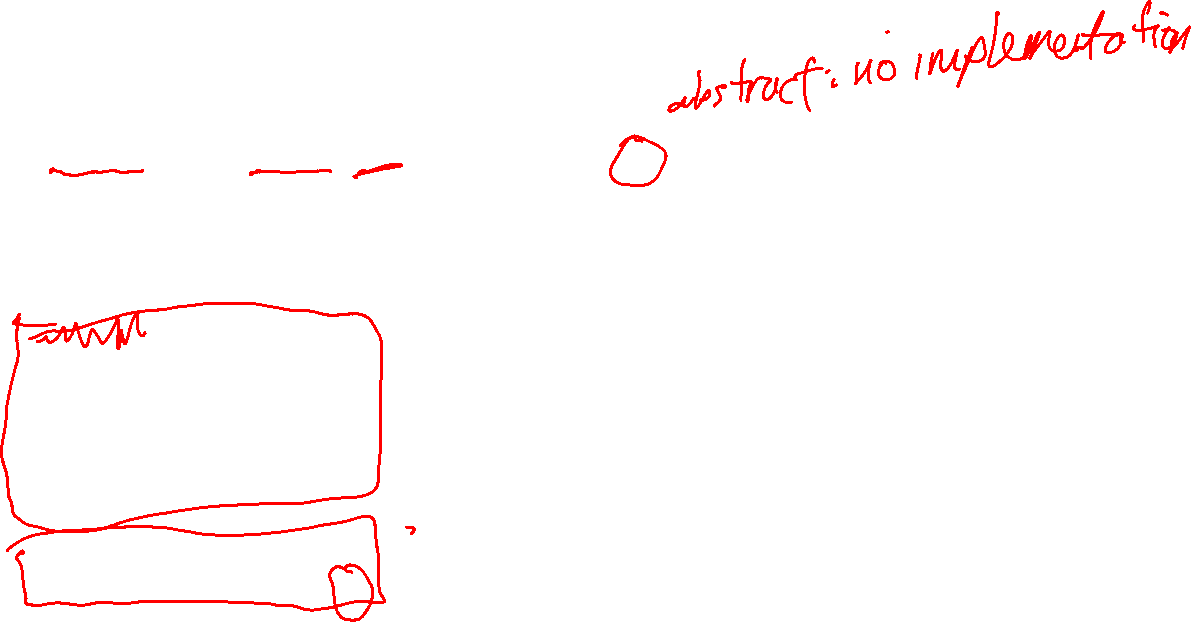 abstract: no implementation